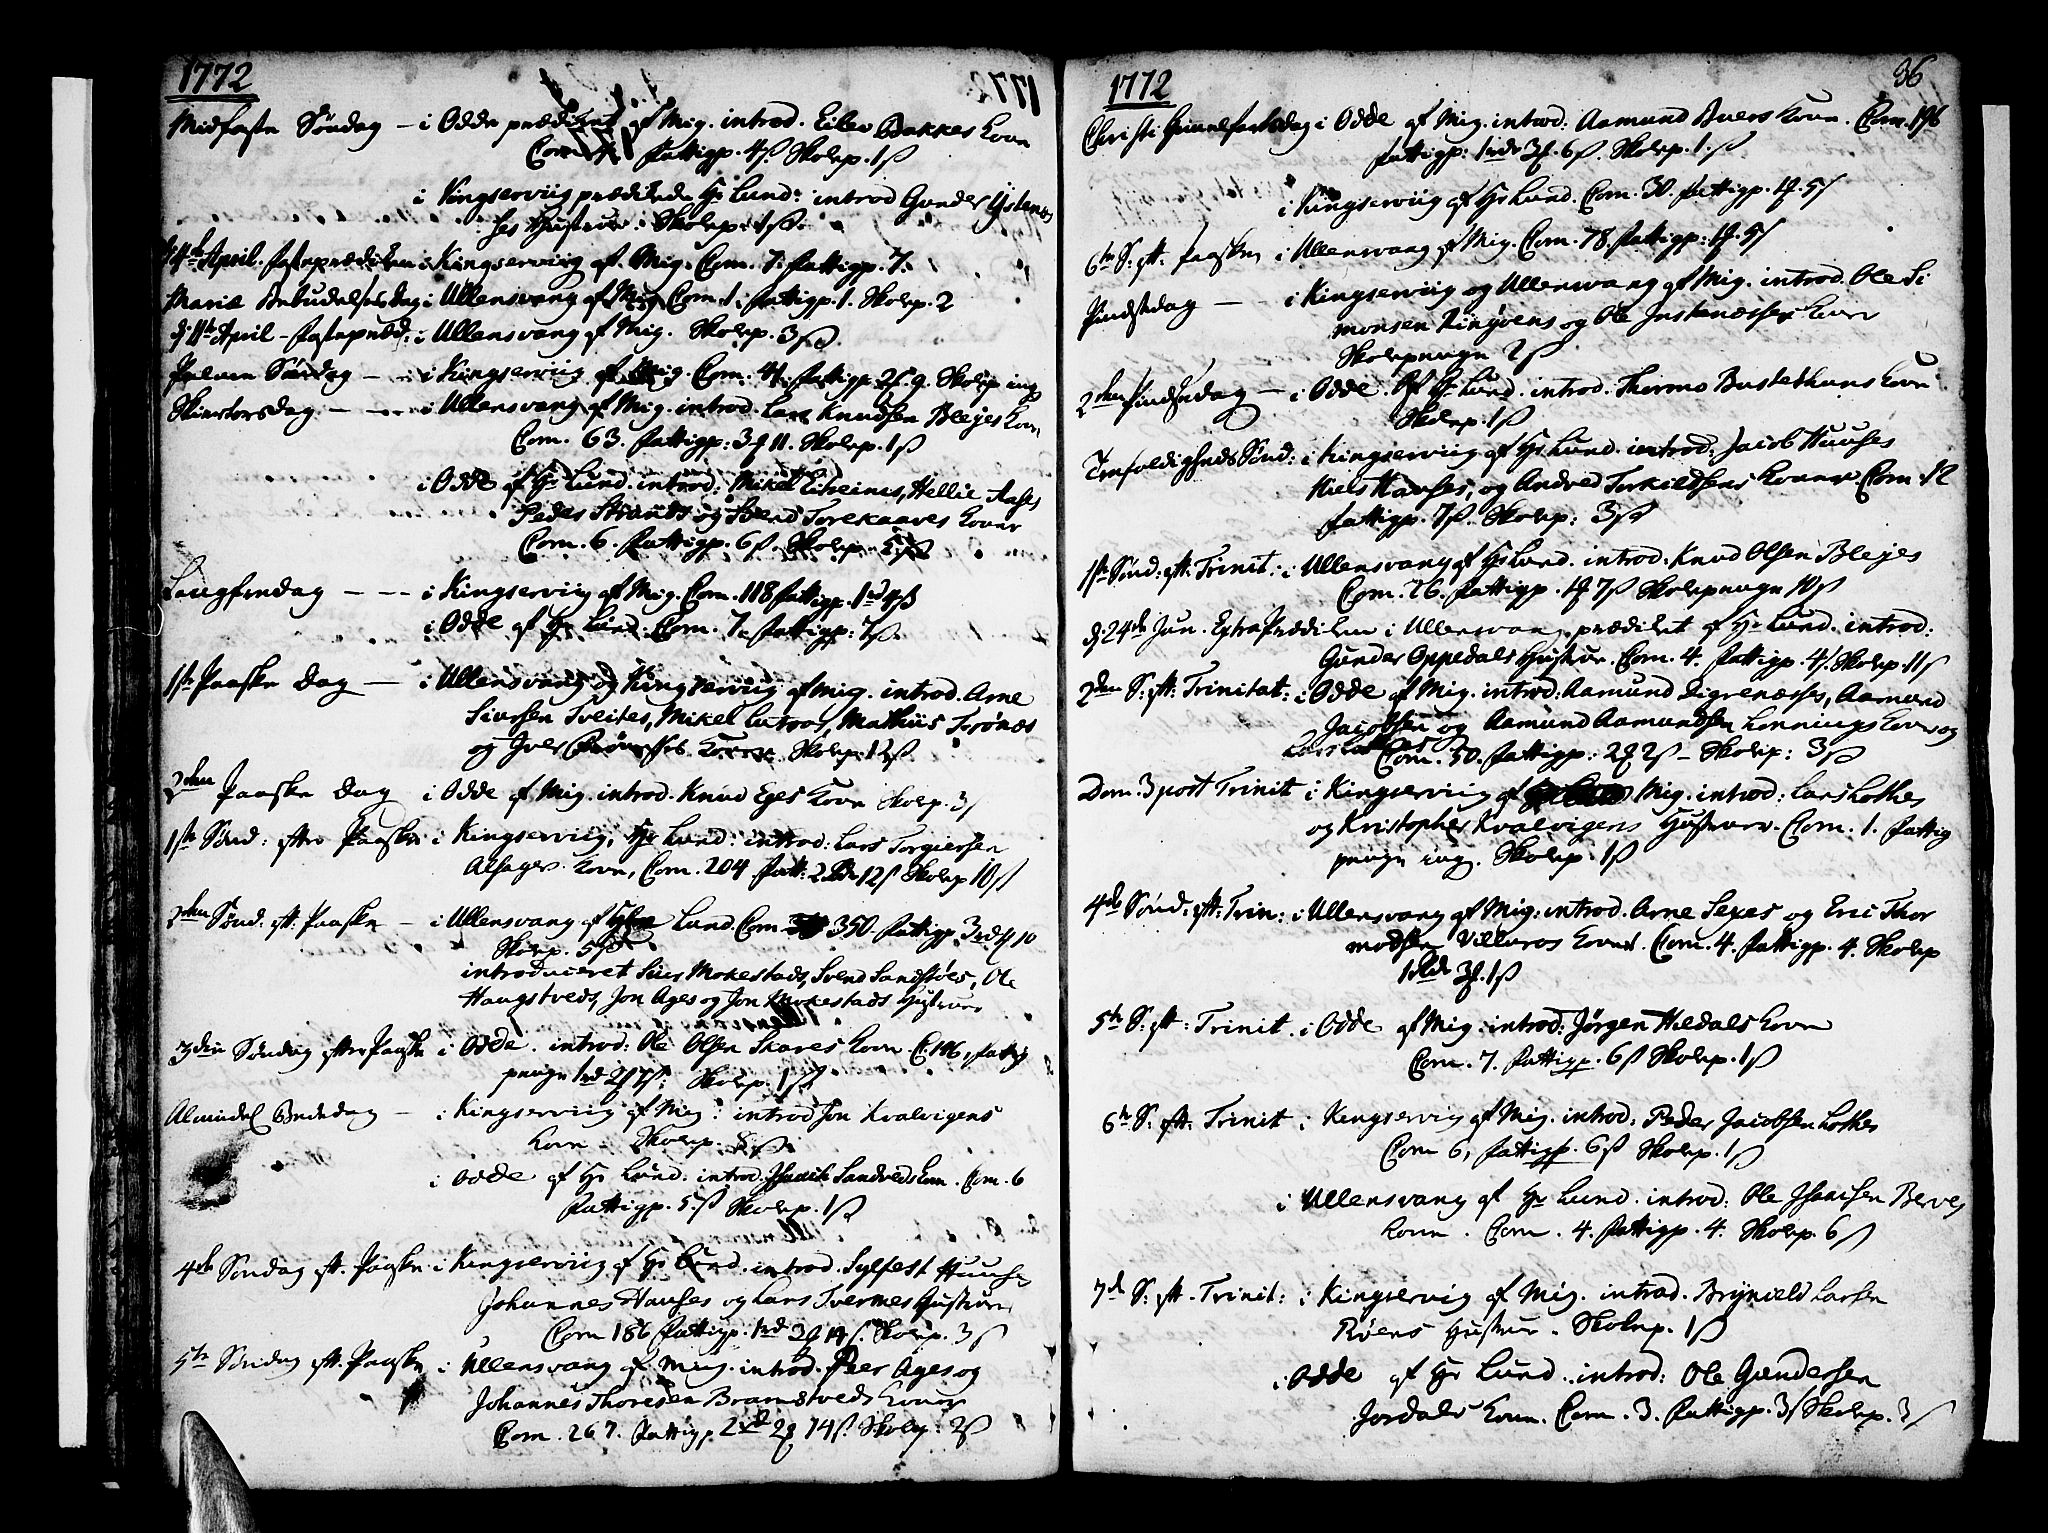 1772
Midfaste Søndag — i Odde prædiket af Mig. introd. Eilev Bakkes Kone
Com. Fattigp. 4ß Skolep. 1ß
i Kingserviig prædikede Hr Lund: introd Gunder
Hustrue. Skolep. 1ß.
April. Fasteprædiken i Kingserviig af Mig. Com. 7. Fattigp. 7.
Mariæ Bebudelsesdag i Ullensvang af Mig Com. 1. Fattigp. 1. Skolep. 2
April - Fastepræd: i Ullensvang af Mig. Skolep. 3ß.
Palme Søndag — i Kingserviig af Mig. Com. 41. Fattigp. 2 9. Skolep ing
Skiertorsdag — i Ullensvang af Mig. introd. Lars Knudsen Blejes Kone
Com. 63. Fattigp: 3 11. Skolep. 1ß
i Odde af Hr Lund. introd: Mikel Eitreims, Hellie Aases
Peder Strands og Svend Torekaaves Koner
Com. 6. Fattigp. 6ß. Skolep. 5ß
Langfredag — i Kingserviig af Mig. Com. 118 Fattigp. 1 4ß
i Odde af Hr Lund. Com. 7. Fattigp: 7ß.
1ste Paaske Dag — i Ullensvang og Kingserviig af mig. introd. Arne
Siursen Tveites, Mikel Lutroes, Mathiis
og Iver Koner. Skolep. 12ß.
2den Paaske Dag i Odde af Mig. introd. Knud Eges Kone Skolep. 3ß
1ste Sønd: efter Paaske i Kingserviig, Hr Lund: introd: Lars Torgiersen
Alsager Kone, Com. 204 Fatt: 2 Rdr 12ß Skolep 10ß
2den Sønd: eft. Paaske — i Ullensvang af Lund. Com. 350. Fattigp. 3rd 4 10
Skolep. 5ß
introduceret Siur Mokestads, Svend Sandstøes, Ole
Haugstveds, Jon Ages og Jon Mokestads Hustruer
3die Søndag efter Paaske i Odde. introd: Ole Olsen Skares Kone C. 146, Fattig
penge 1rd 2 7ß: Skolep. 1ß
Almindel Bededag — i Kingserviig af Mig: introd Jon Kvalvigens
Kone. Skolep. 8ß.
i Odde af Hr Lund: introd. Sandveds Kone. Com. 6
Fattigp. 5ß Skolep. 1ß
4de Søndag eft. Paaske i Kingserviig af Hr Lund. introd. Sylfest Huuses
Johannes Hauses og Lars Tvermes Hustruer
Com 186 Fattigp. 1rd 3 14ß. Skolep. 3ß
5te Søndag eft. Paaske i Ullensvang af mig. introd. Peer Ages og
Johannes Thoresen Bramstveds Koner
Com. 267. Fattigp. 2rd 2 14ß Skolep: 2ß
1772
36
Christi Himmelfartsdag i Odde af Mig. introd: Aamund Buers Kone. Com. 196
Fattigp: 1rdr 3 6ß. Skolep. 1ß
i Kingserviig af Hr Lund. Com. 30. Fattigp. 1 5ß
6te S: eft. Paaske i Ullensvang af Mig. Com. 78. Fattigp: 1 5ß
Pindsedag — i Kingserviig og Ullensvang af Mig. introd. Ole Si
monsen Ringøens og Ole Instenæsses Koner
Skolepenge 2ß
2den Pindsedag — i Odde. Af Hr Lund. introd. Thormo Bustethuns Kone
Skolep. 1ß
Trefoldigheds Sønd: i Kingserviig af Hr Lund. introd: Jacob Huuses
Niels Hauses, og Andred Torkildsens Koner. Com. 12
Fattigp. 7ß. Skolep: 3ß
1ste Sønd: eft: Trinit: i Ullensvang af Hr Lund. introd. Knud Olsen Blejes
Com. 26. Fattigp. 1 7ß Skolepenge 10ß
d: 24de Jun. ExtraPrædiken i Ullensvang prædiket af Hr Lund. introd:
Gunder Oppedals Hustrue. Com. 4. Fattigp. 4ß. Skolep. 11ß
2den S: eft: Trinitat: i Odde af Mig. introd: Aamund Digrenæsses, Aamund
Jacobsen og Aamund Aamundsen Lønnings Koner og
Com. 50. Fattigp: 2 2ß — Skolep: 3ß
Dom. 3 post Trinit i Kingserviig af Mig. introd: Lars Lothes
og Kristopher Kvalvigens Hustruer. Com. 1. Fattig
penge ing. Skolep. 1ß
4de Sønd: eft: Trin: i Ullensvang af Mig: introd. Arne Sexes og Eric Thor
modsen Villuroes Koner. Com. 4. Fattigp. 4. Skolep
1Rdr 3. 1ß
5te S: eft: Trinit. i Odde af Mig: introd: Jørgen Hildals Kone
Com. 7. Fattigp. 6ß Skolep. 1ß
6te S: eft: Trinit i Kingservig af Mig. introd: Peder Jacobsen Lothes
Com 6, Fattigp. 6ß Skolep. 1ß
i Ullensvang af Hr Lund. introd: Ole Isaacsen Berves
Kone. Com. 4. Fattigp. 4. Skolep. 6ß
7de S: eft. Trinit: i Kingservig af Mig. introd. Brynield Larsen
Røens Hustrue. Skolep. 1ß
i Odde af Hr Lund. introd: Ole Gundersen
Jordals Kone. Com. 3. Fattigp. 3ß Skolep. 3ß